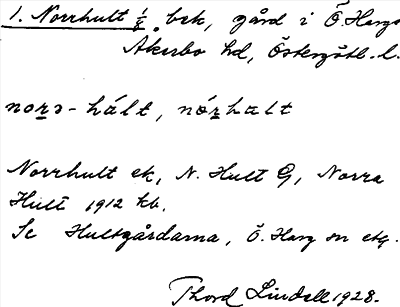 1. Norrhult ⅛ bek, gård i Ö. Harg
Åkerbo hd, Östergötl. l.
norə-hált, nórhalt
Norrhult ek, N. Hult G, Norra
Hult 1912 kb.
Se Hultgårdarna, Ö. Harg sn etg.
Thord Lindell 1928.